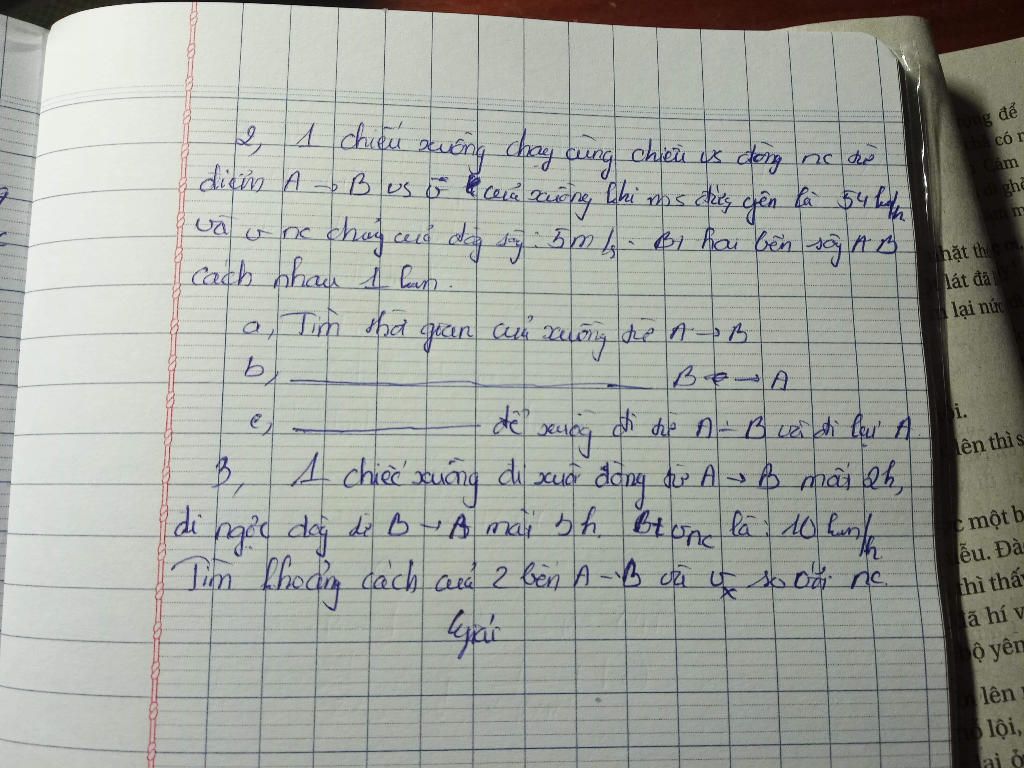 2, 1 chiếu xuồng chay cùng chiều vs dòng nc từ
điểm A → B vs v̄ của xuồng khi nc đứng yên là 54 km/h
và v nc chảy của dòg sôg : 5m/s. Bt hai bên sôg A B
cách nhau 1 km.
a, Tìm thời gian của xuồng từ A → B
b, ____________ B → A
c, ________ để xuồg đi từ A → B và đi lại A.
3, 1 chiếc xuồng đi xuôi dòng từ A → B mất 2h,
đi ngọc dòg từ B → A mất 3h. Bt vnc là : 10 km/h
Tìm khoảng cách của 2 bên A → B và vx so với nc.
Giải
ọng để
có n
Cám
nhặt th
lát đã
lại nức
ôi.
lên thì s
c một b
iễu. Đà
thì thấ
lã hí v
bộ yên
lên
lội,